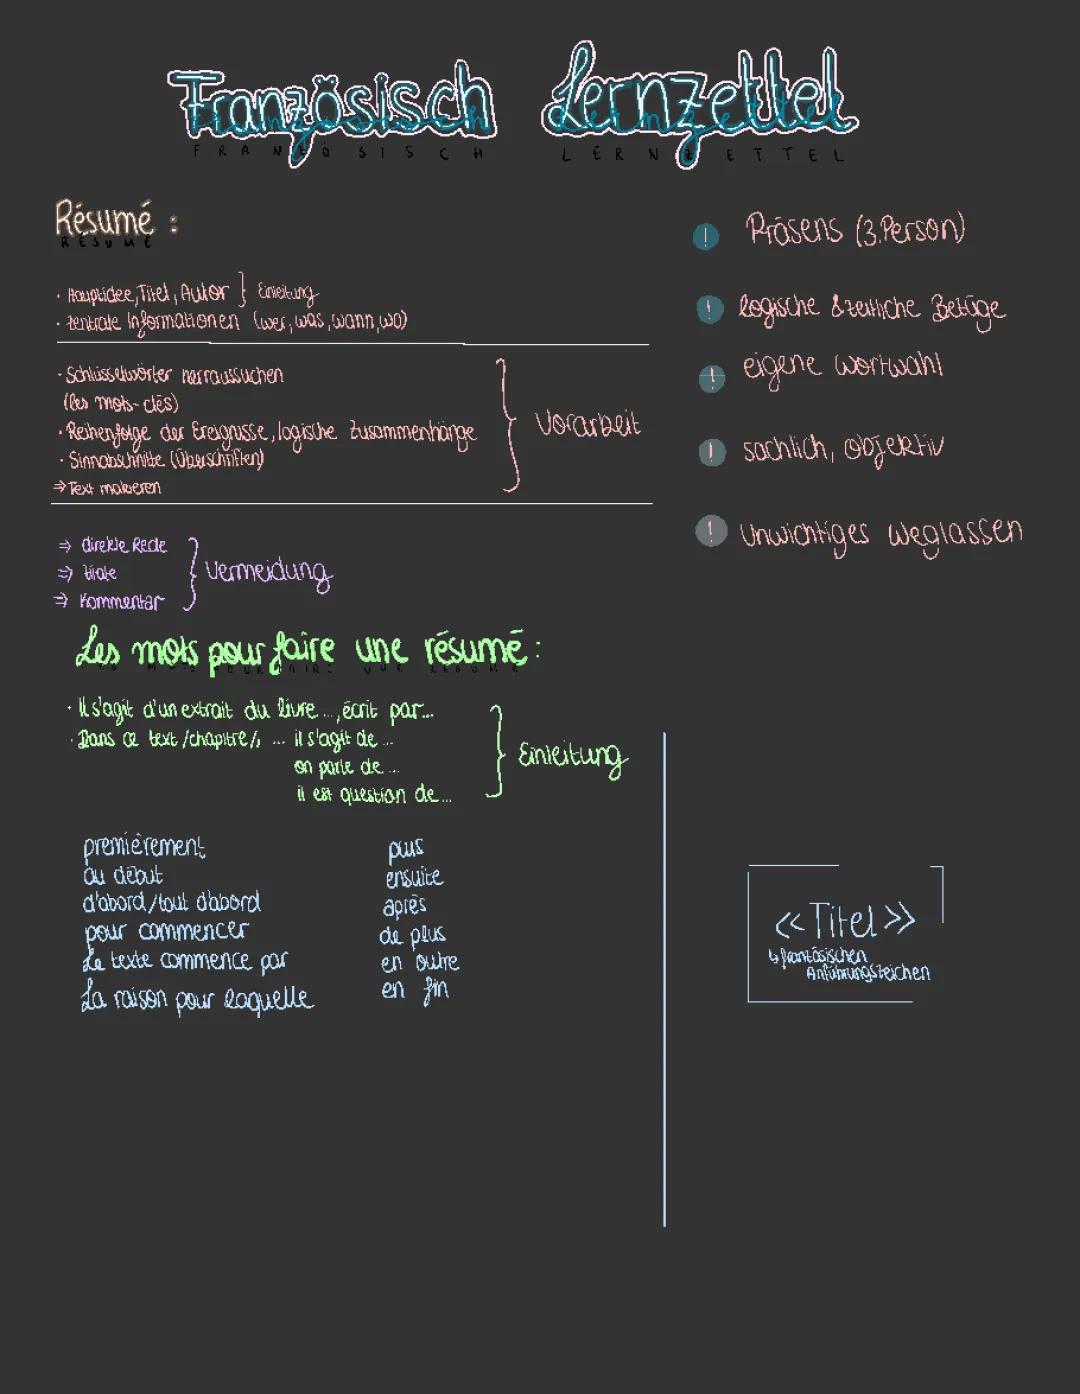 Französisch Lernzettel
FRANZÖSISCH LERNZETTEL
Résumé :
RÉSUMÉ
· Hauptidee, Titel, Autor } Einleitung
· zentrale Informationen (wer, was, wann, wo)
· Schlüsselwörter herraussuchen
(les mots-clés)
· Reihenfolge der Ereignisse, logische Zusammenhänge
· Sinnabschnitte (Überschriften)
⇒ Text makieren
Vorarbeit
⇒ direkte Rede
⇒ Zitate
⇒ Kommentar
Vermeidung
! Präsens (3.Person)
! logische & zeitliche Bezüge
! eigene Wortwahl
! sachlich, objektiv
! Unwichtiges weglassen
Les mots pour faire une résumé :
· Il s'agit d'un extrait du livre ..., écrit par...
· Dans ce text /chapitre /, ... il s'agit de ...
on parle de ...
il est question de ...
Einleitung
premièrement
au début
d'abord /tout d'abord
pour commencer
Le texte commence par
La raison pour laquelle
puis
ensuite
après
de plus
en outre
en fin
<<Titel>>
↳ französischen
Anführungszeichen